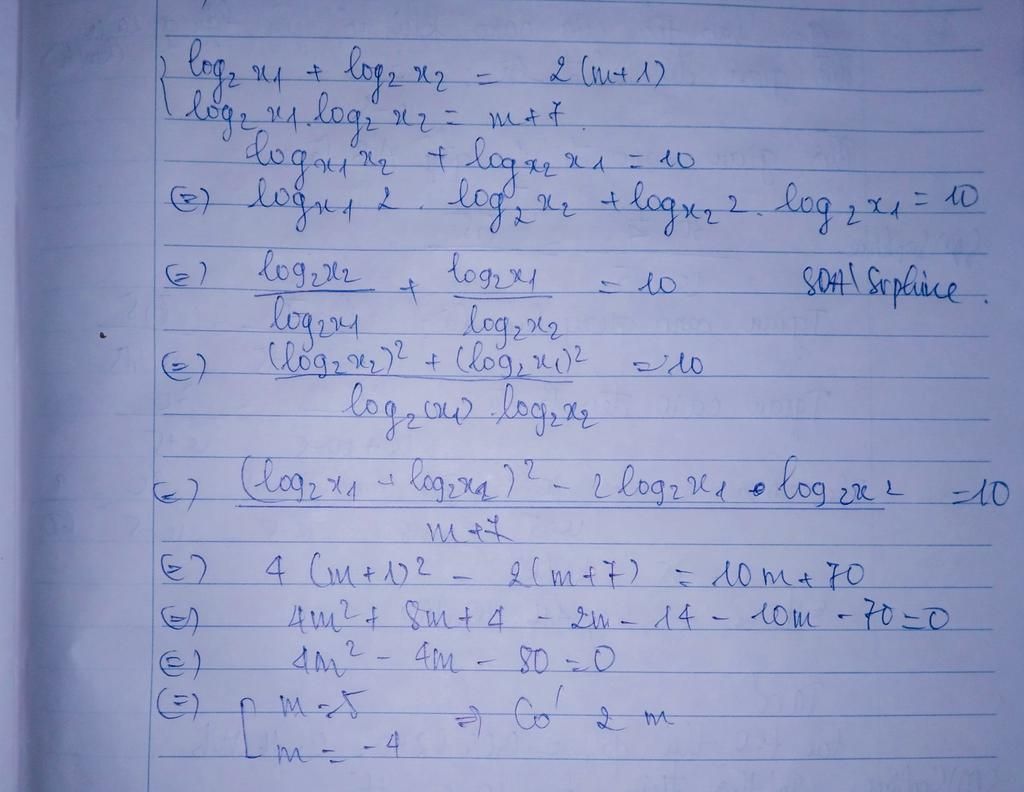 { log₂ x₁ + log₂ x₂ = 2(m+1)
log₂ x₁ . log₂ x₂ = m+7
log x₁ x₂ + log x₂ x₁ = 10
(=) log x₁ 2 . log₂ x₂ + log x₂ 2 . log₂ x₁ = 10
(=) log₂x₂ / log₂x₁ + log₂x₁ / log₂x₂ = 10 SOA\
(=) (log₂x₂)² + (log₂x₁)² / log₂(x₁) . log₂x₂ = 10
(=) (log₂x₁ + log₂x₂)² - 2log₂x₁ . log₂x₂ / m+7 = 10
(=) 4(m+1)² - 2(m+7) = 10m+70
(=) 4m² + 8m + 4 - 2m - 14 - 10m - 70 = 0
(=) 4m² - 4m - 80 = 0
(=) [ m = 5 => Có 2 m
m = -4